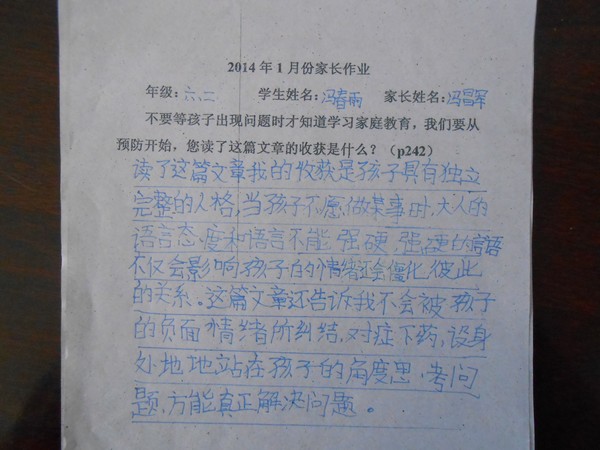 2014年1月份家长作业
年级:六、二 学生姓名:冯春雨 家长姓名:冯冒军
不要等孩子出现问题时才知道学习家庭教育，我们要从
预防开始，您读了这篇文章的收获是什么？（p242）
读了这篇文章我的收获是孩子具有独立
完整的人格,当孩子不愿做某事时,大人的
语言态度和语言不能强硬,强硬的言语
不仅会影响孩子的情绪还会僵化彼此
的关系。这篇文章还告诉我不会被孩子
的负面情绪所纠结,对症下药,设身
处地地站在孩子的角度思考问
题,方能真正解决问题。